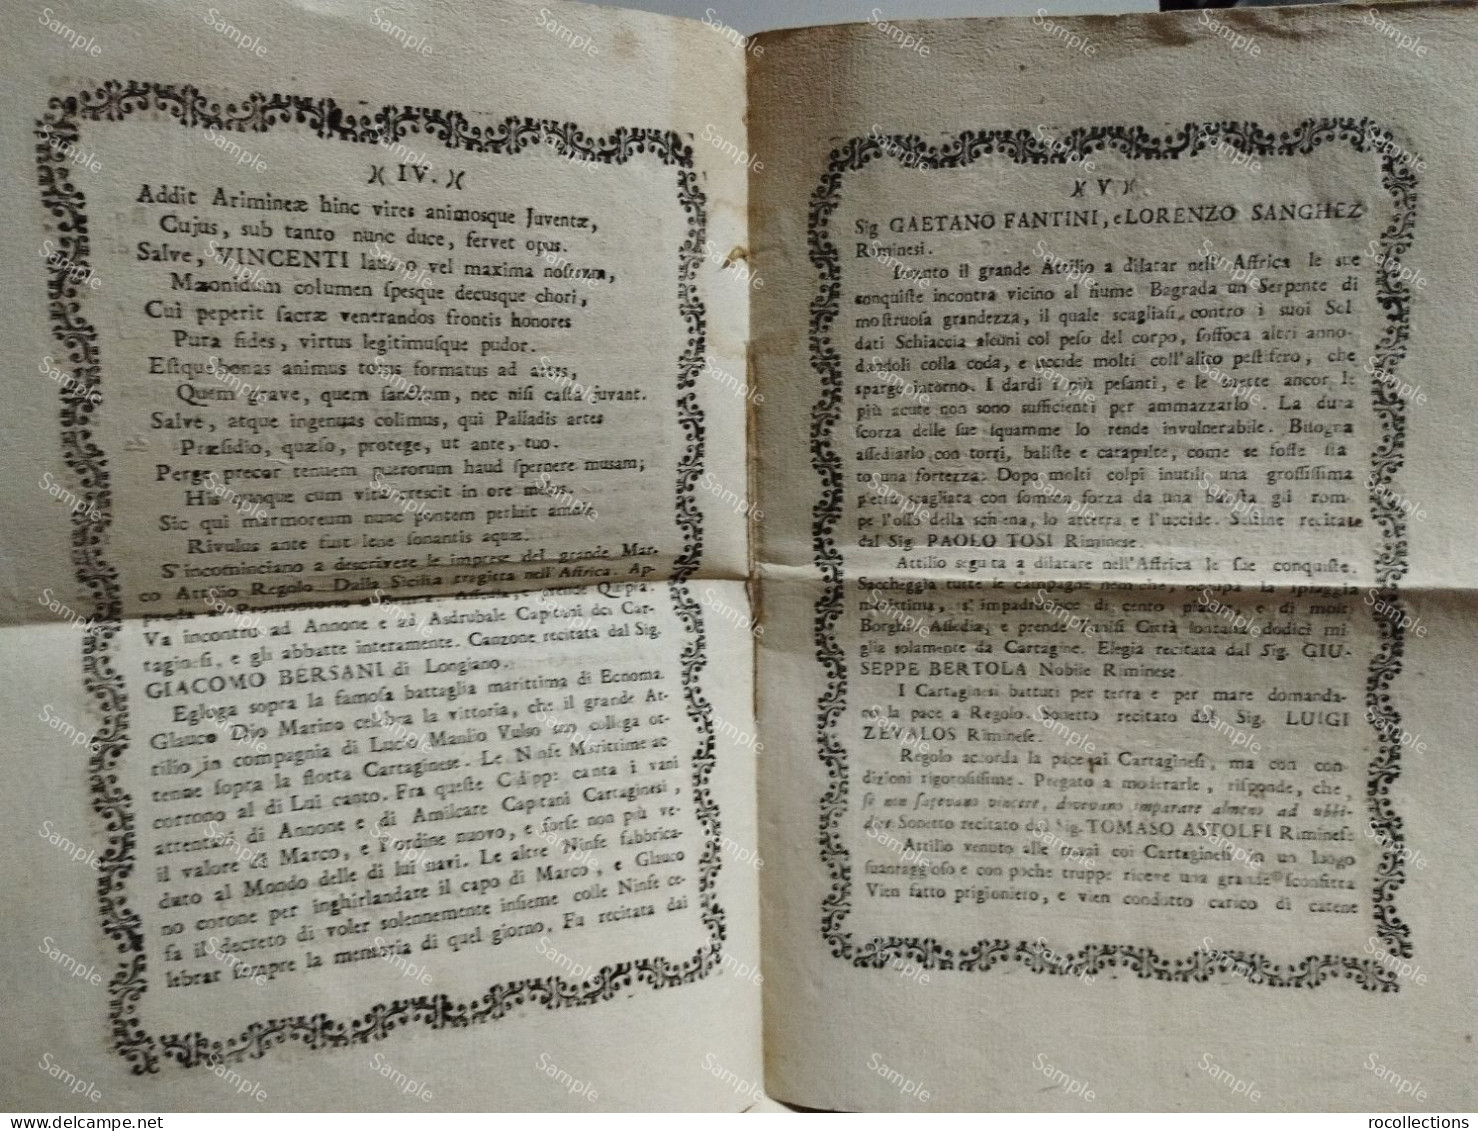 )( IV. )(
Addit Arimineæ hinc vires animosque Juventæ,
Cujus, sub tanto nunc duce, fervet opus.
Salve, VINCENTI laus o vel maxima nostrum,
Mæonidum columen spesque decusque chori,
Cui peperit sacræ venerandos frontis honores
Pura fides, virtus legitimusque pudor.
Estque bonas animus totus formatus ad artes,
Quem grave, quem sanctum, nec nisi casta juvant.
Salve, atque ingenuas colimus, qui Palladis artes
Præsidio, quæso, protege, ut ante, tuo.
Perge precor tenuem puerorum haud spernere musam;
His quoque cum vita crescit in ore melos.
Sic qui marmoreum nunc pontem perluit amnis
Rivulus ante fuit lene sonantis aquæ.
S'incominciano a descrivere le imprese del grande Mar-
co Attilio Regolo. Dalla Sicilia tragitta nell'Affrica. Ap-
proda al Promontorio Assedia, e prende Quipia.
Va incontro ad Annone e ad Asdrubale Capitani dei Car-
taginesi, e gli abbatte interamente. Canzone recitata dal Sig.
GIACOMO BERSANI di Longiano.
Egloga sopra la famosa battaglia marittima di Ecnoma.
Glauco Dio Marino celebra la vittoria, che il grande At-
tilio in compagnia di Lucio Manlio Vulso suo collega ot-
tenne sopra la flotta Cartaginese. Le Ninfe Marittime ac
corrono al di Lui canto. Fra queste canta i vani
attentati di Annone e di Amilcare Capitani Cartaginesi,
il valore di Marco, e l'ordine nuovo, e forse non più ve-
duto al Mondo delle di lui navi. Le altre Ninfe fabbrica-
no corone per inghirlandare il capo di Marco, e Glauco
fa il decreto di voler solennemente insieme colle Ninfe ce-
lebrar sempre la memoria di quel giorno. Fu recitata dai
)( V )(
Sig GAETANO FANTINI, e LORENZO SANGHEZ
Riminesi.
Intento il grande Attilio a dilatar nell'Affrica le sue
conquiste incontra vicino al fiume Bagrada un Serpente di
mostruosa grandezza, il quale scagliasi contro i suoi Sol
dati Schiaccia alcuni col peso del corpo, soffoca altri anno-
dandoli colla coda, e uccide molti coll'alito pestifero, che
sparge intorno. I dardi i più pesanti, e le saette ancor le
più acute non sono sufficienti per ammazzarlo. La dura
scorza delle sue squamme lo rende invulnerabile. Bisogna
assediarlo con torri, baliste e catapulte, come se fosse sta
to una fortezza: Dopo molti colpi inutili una grossissima
pietra scagliata con somma forza da una balista gli rom-
pe l'osso della schiena, lo atterra e l'uccide. Sestine recitate
dal Sig. PAOLO TOSI Riminese.
Attilio seguita a dilatare nell'Affrica le sue conquiste.
Saccheggia tutte le campagne nemiche, occupa la spiaggia
marittima, s'impadronisce di cento piazze, e di molti
Borghi. Assedia, e prende Tunisi Città lontana dodici mi
glia solamente da Cartagine. Elegia recitata dal Sig. GIU-
SEPPE BERTOLA Nobile Riminese.
I Cartaginesi battuti per terra e per mare domanda-
no la pace a Regolo. Sonetto recitato dal Sig. LUIGI
ZEVALOS Riminese.
Regolo accorda la pace ai Cartaginesi, ma con con
dizioni rigorosissime. Pregato a moderarle, risponde, che,
se non sapevano vincere, dovevano imparare almeno ad ubbi-
dire Sonetto recitato dal Sig. TOMASO ASTOLFI Riminese
Attilio venuto alle mani coi Cartaginesi in un luogo
svantaggioso e con poche truppe riceve una grande sconfitta
Vien fatto prigioniero, e vien condotto carico di catene